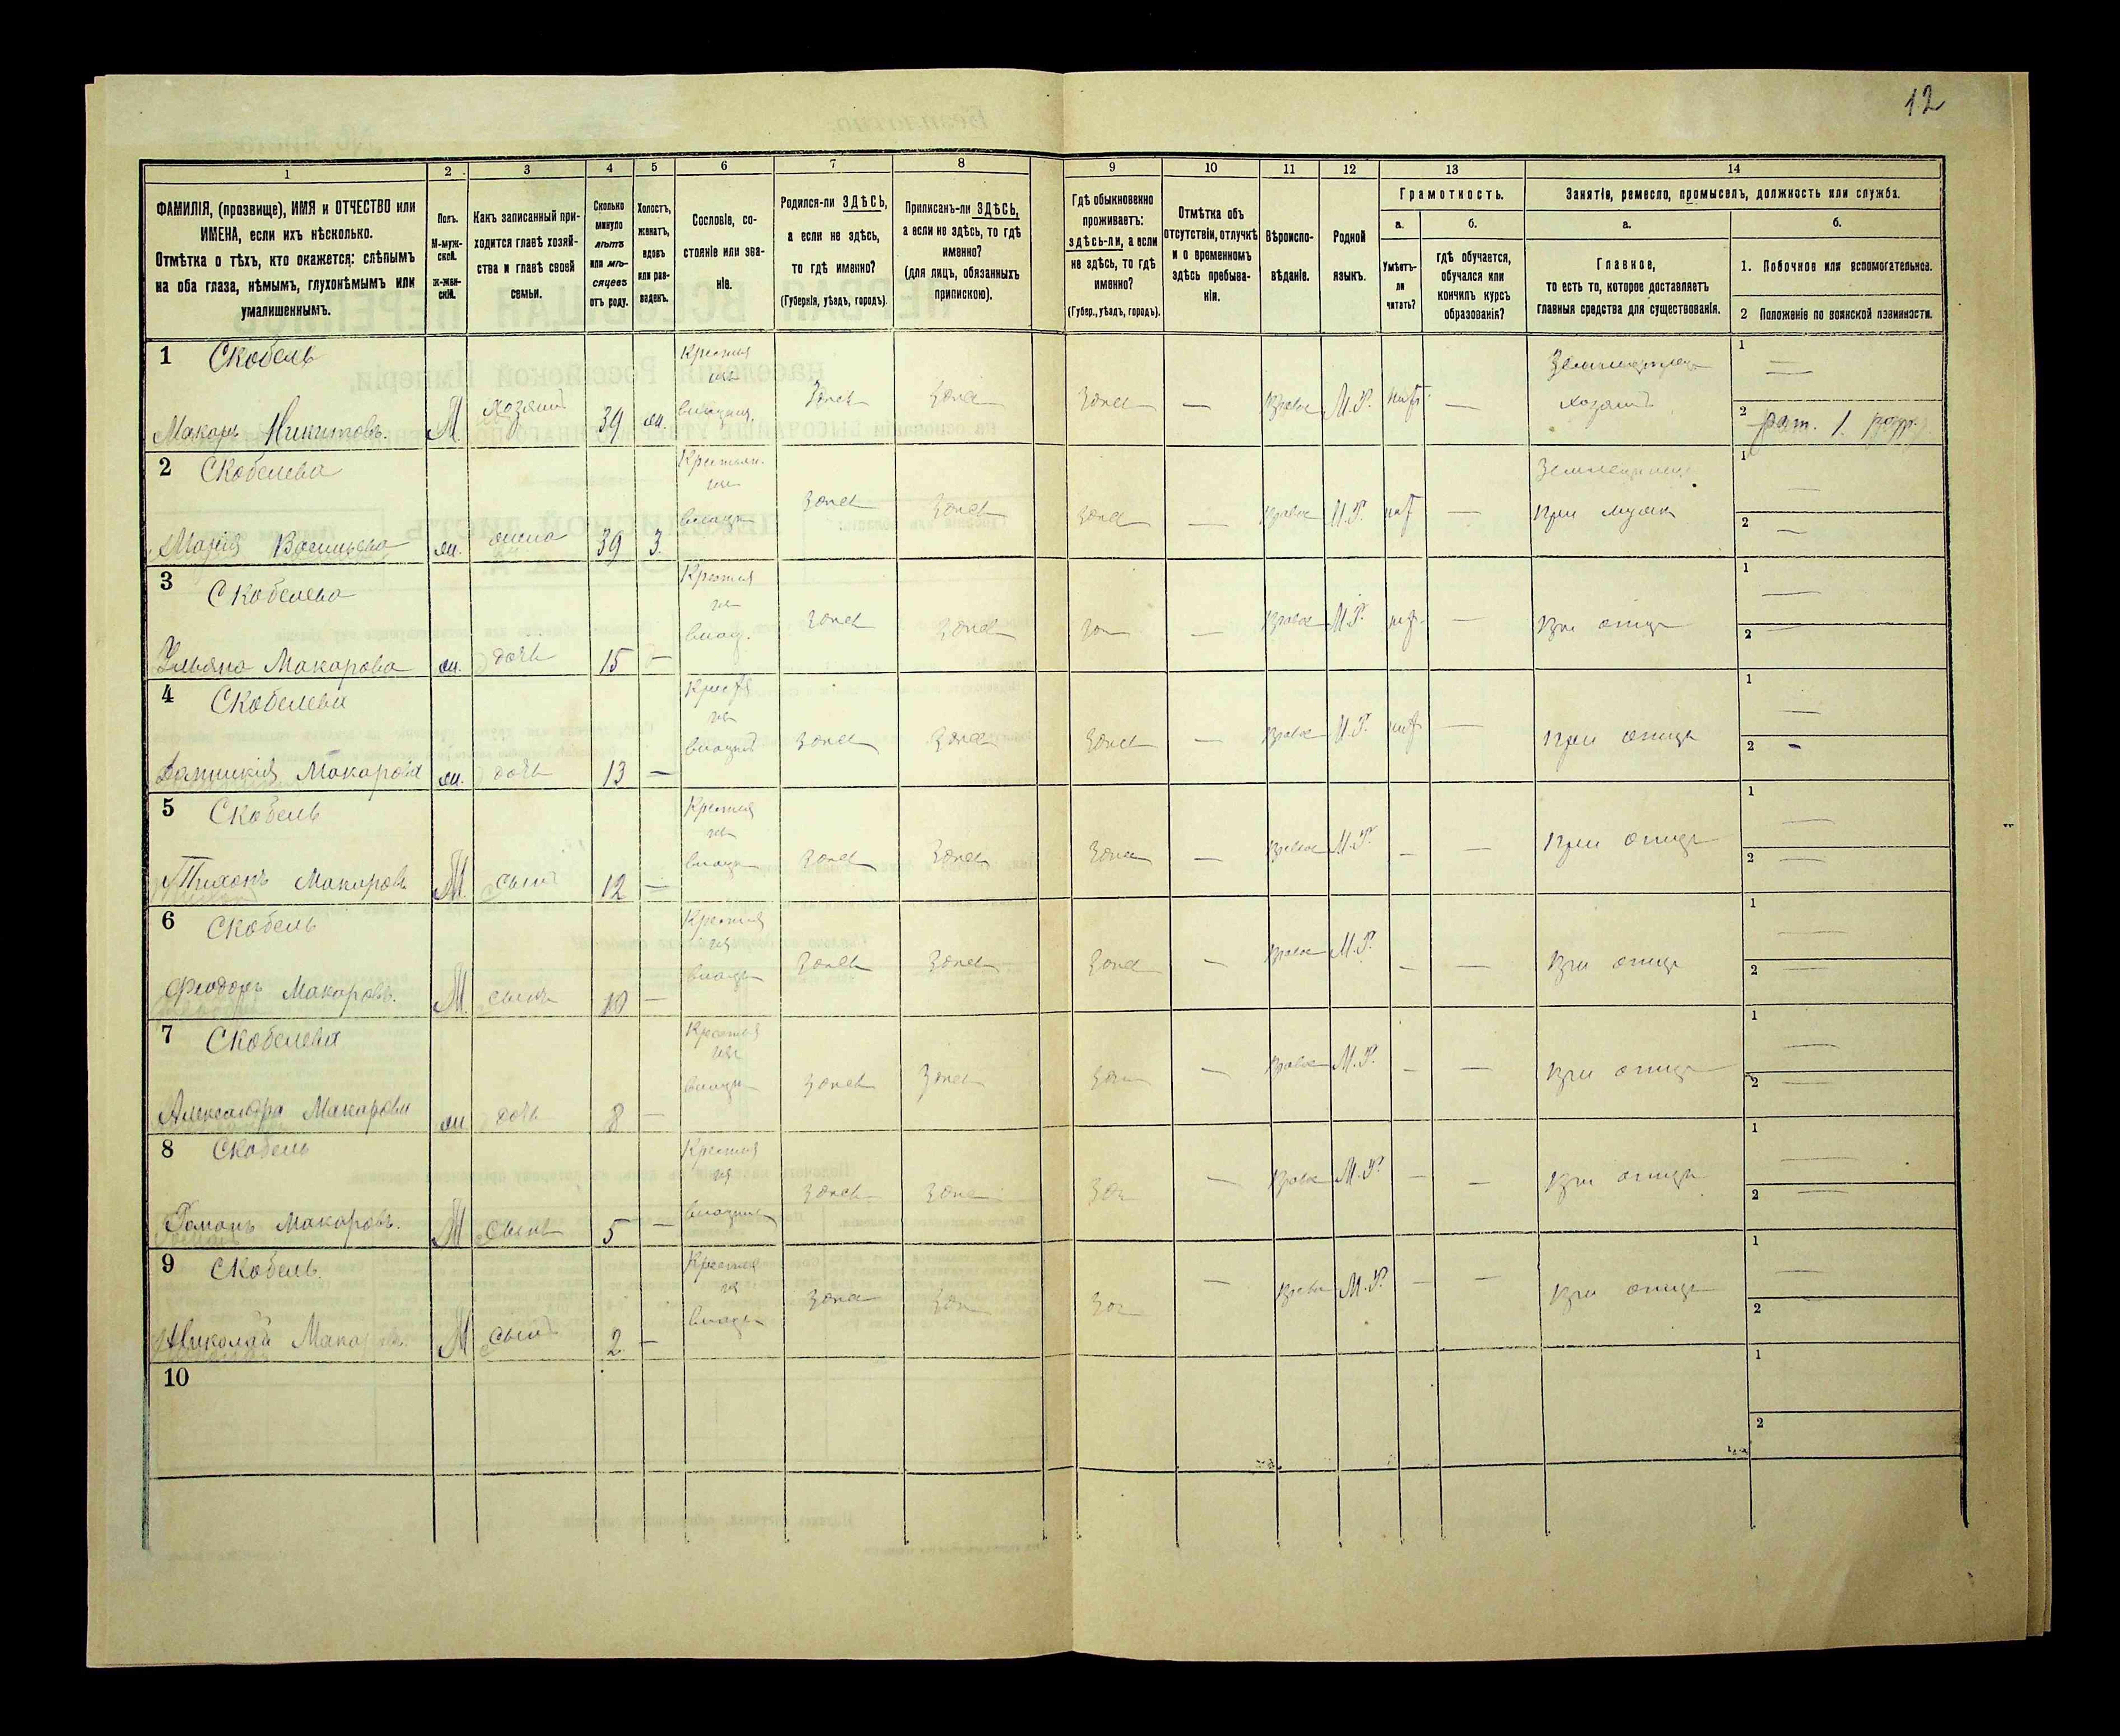 12
1 2 3 4 5 6 7 8 9 10 11 12 13 14
ФАМИЛІЯ, (прозвище), ИМЯ и ОТЧЕСТВО или
ИМЕНА, если ихъ нѣсколько.
Отмѣтка о тѣхъ, кто окажется: слѣпымъ
на оба глаза, нѣмымъ, глухонѣмымъ или
умалишеннымъ.
Полъ.
М-муж-
ской.
Ж-жен-
скій.
Какъ записанный при-
ходится главѣ хозяй-
ства и главѣ своей
семьи.
Сколько
минуло
лѣтъ
или мѣ-
сяцевъ
отъ роду.
Холостъ,
женатъ,
вдовъ
или раз-
веденъ.
Сословіе, со-
стояніе или зва-
ніе.
Родился-ли ЗДѢСЬ,
а если не здѣсь,
то гдѣ именно?
(Губернія, уѣздъ, городъ).
Приписанъ-ли ЗДѢСЬ,
а если не здѣсь, то гдѣ
именно?
(для лицъ, обязанныхъ
припискою).
Гдѣ обыкновенно
проживаетъ:
здѣсь-ли, а если
не здѣсь, то гдѣ
именно?
(Губер., уѣздъ, городъ).
Отмѣтка объ
отсутствіи, отлучкѣ
и о временномъ
здѣсь пребыва-
ніи.
Вѣроиспо-
вѣданіе.
Родной
языкъ.
Грамотность.
а.
Умѣетъ-
ли
читать?
б.
гдѣ обучается,
обучался или
кончилъ курсъ
образованія?
Занятіе, ремесло, промыселъ, должность или служба.
а.
Главное,
то есть то, которое доставляетъ
главныя средства для существованія.
б.
1. Побочное или вспомогательное.
2 Положеніе по воинской повинности.
1 Скобель
Макаръ Никитовъ. М хозяинъ 39 ж. здѣсь здѣсь здѣсь — М.Р. — хозяинъ
1 —
2 рат. 1. разр.
2 Скобелева
Марія ж. жена 39 з. здѣсь здѣсь здѣсь — М.Р. — При мужѣ
1 —
2 —
3 Скобелева
Ульяна Макарова ж. дочь 15 — здѣсь здѣсь — М.Р. — При отцѣ
1 —
2 —
4 Скобелева
Макарова ж. дочь 13 — здѣсь здѣсь здѣсь — М.Р. — При отцѣ
1 —
2 -
5 Скобель
Тихонъ Макаровъ М. сынъ 12 — здѣсь здѣсь здѣсь — М.Р. — — При отцѣ
1 —
2 —
6 Скобель
Феодоръ Макаровъ. М сынъ 10 — здѣсь здѣсь здѣсь — М.Р. — — При отцѣ
1 —
2 —
7 Скобелева
Александра Макарова ж дочь 8 — здѣсь здѣсь — М.Р. — — При отцѣ
1 —
2 —
8 Скобель
Романъ Макаровъ. М сынъ 5 — здѣсь — М.Р. — — При отцѣ
1 —
2 —
9 Скобель.
Николай М сынъ 2 — здѣсь — М.Р. — — При отцѣ
1 —
2
10
1
2